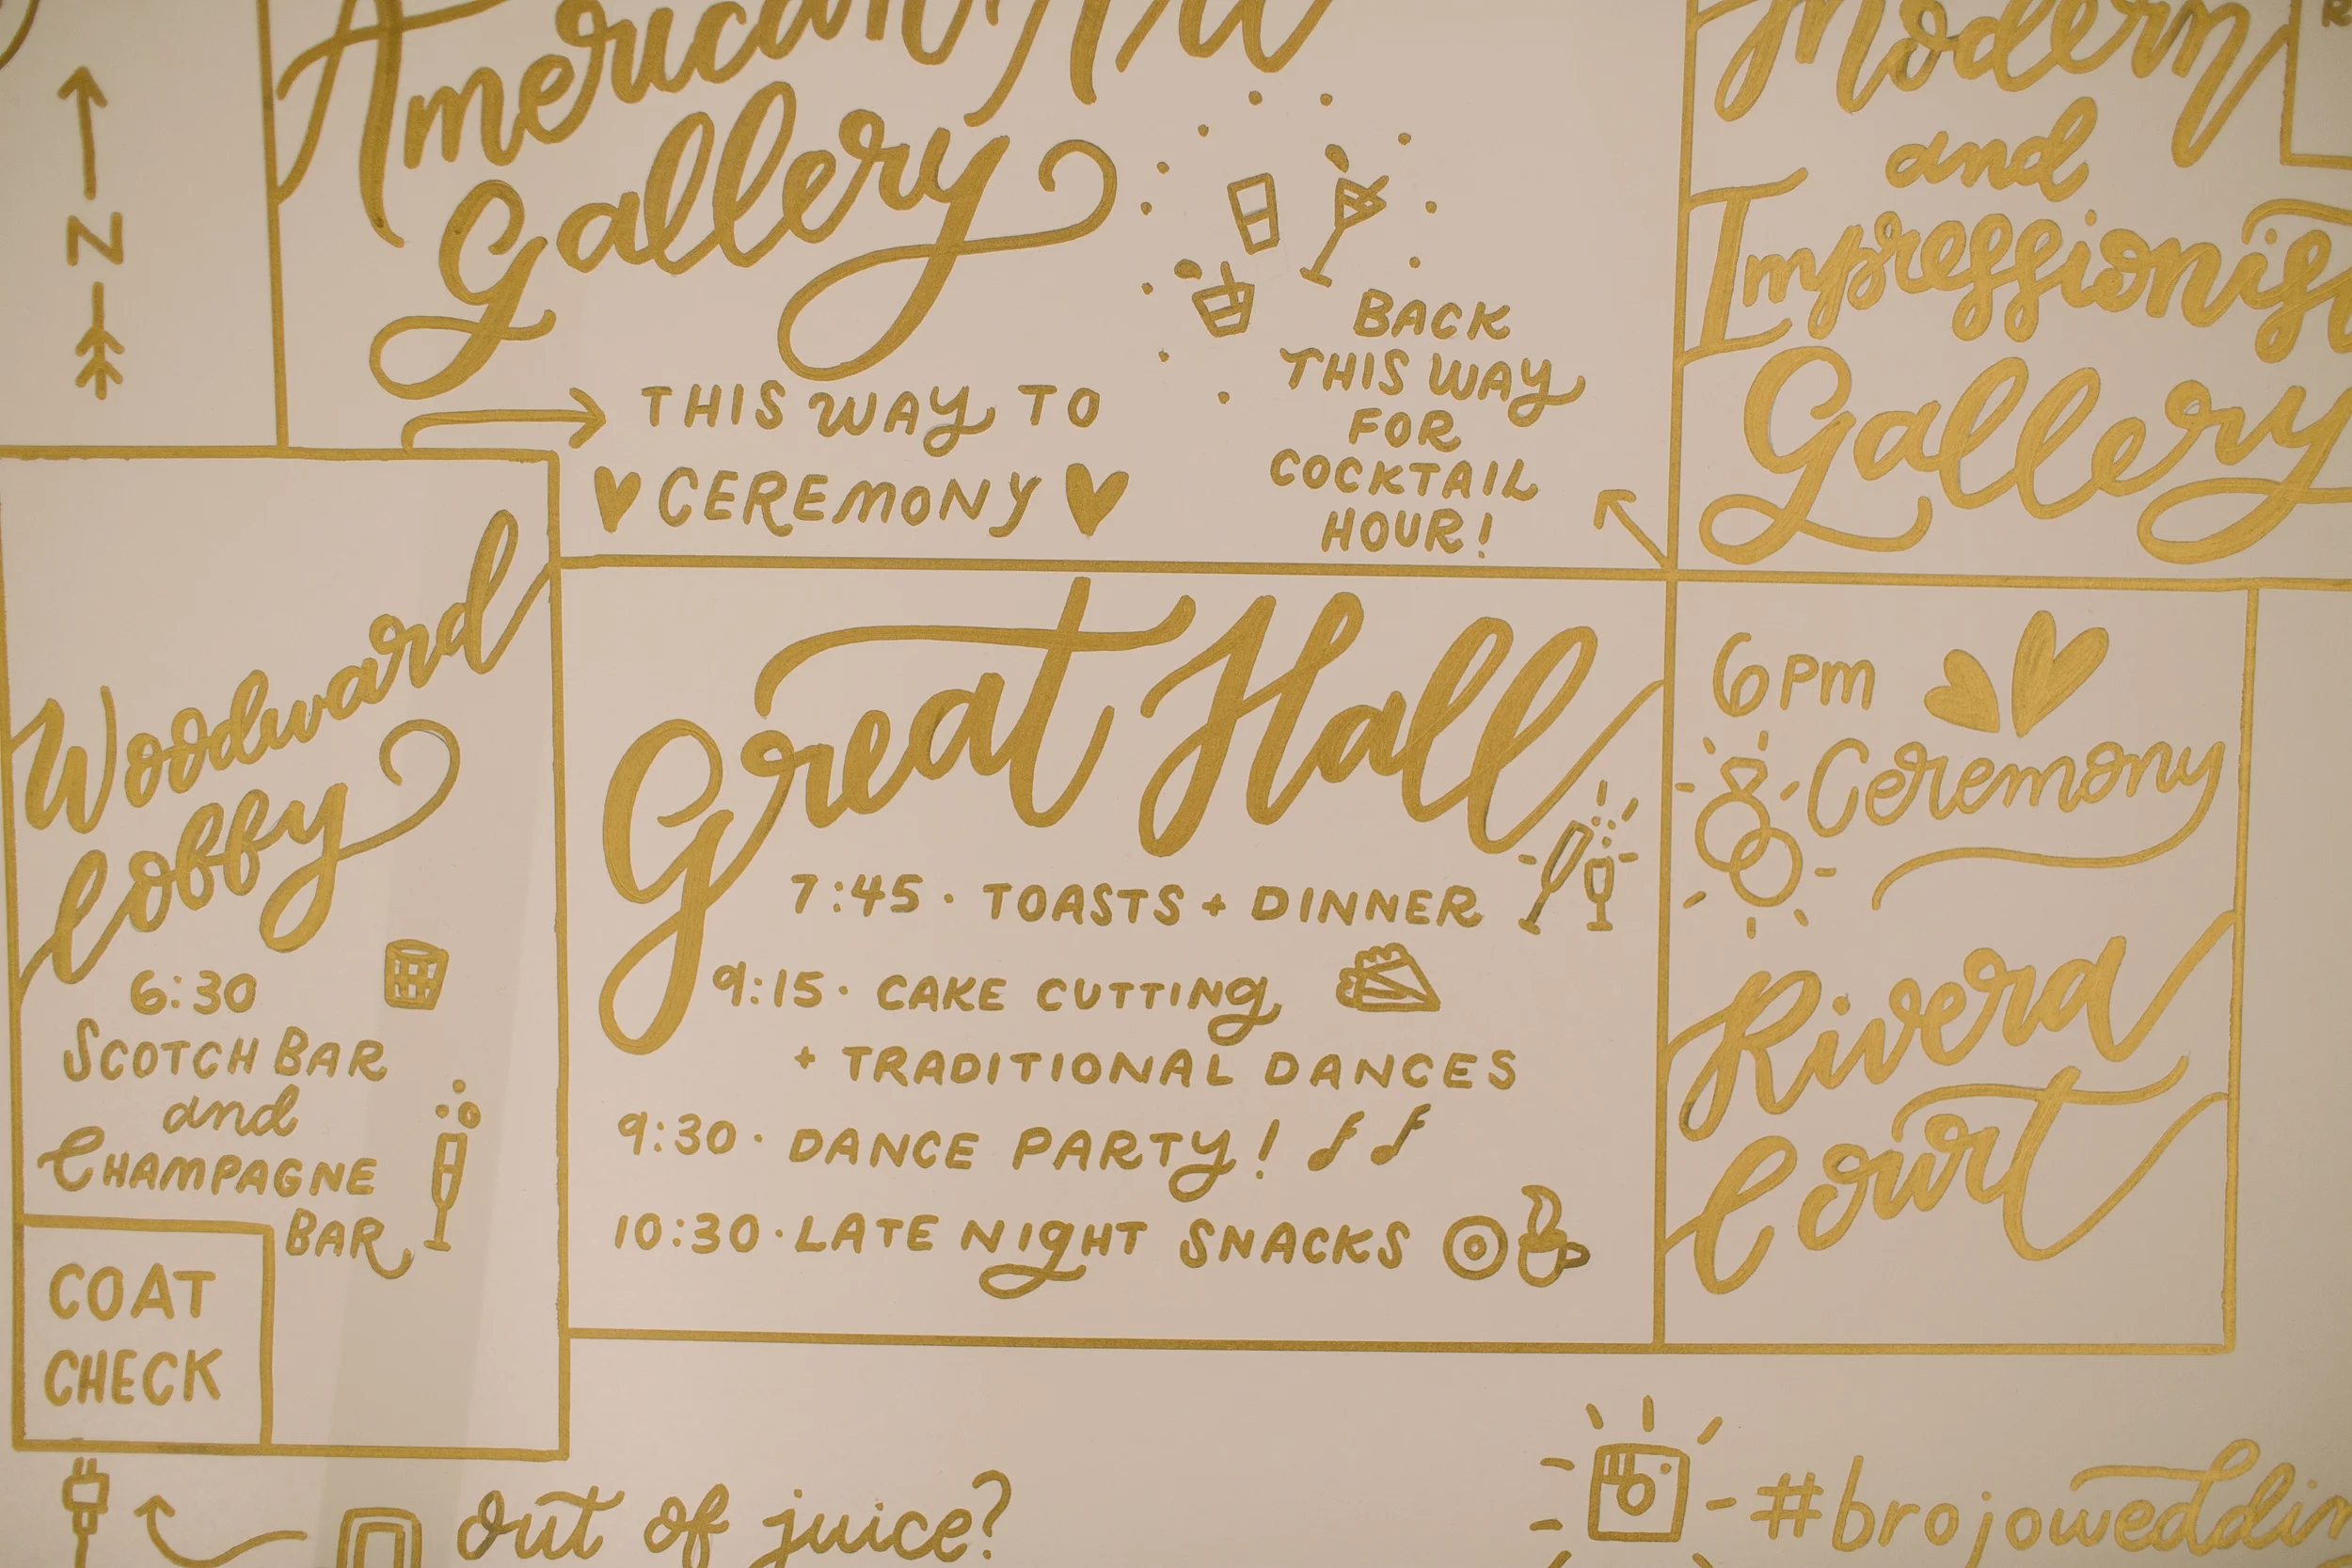 American Art
Gallery
N
THIS WAY TO
CEREMONY
BACK
THIS WAY
FOR
COCKTAIL
HOUR!
Modern
and
Impressionist
Gallery
Woodward
Lobby
6:30
SCOTCH BAR
and
CHAMPAGNE
BAR
COAT
CHECK
Great Hall
7:45 · TOASTS + DINNER
9:15 · CAKE CUTTING
+ TRADITIONAL DANCES
9:30 · DANCE PARTY!
10:30 · LATE NIGHT SNACKS
6pm
Ceremony
Rivera
Court
out of juice?
#brojoweddin